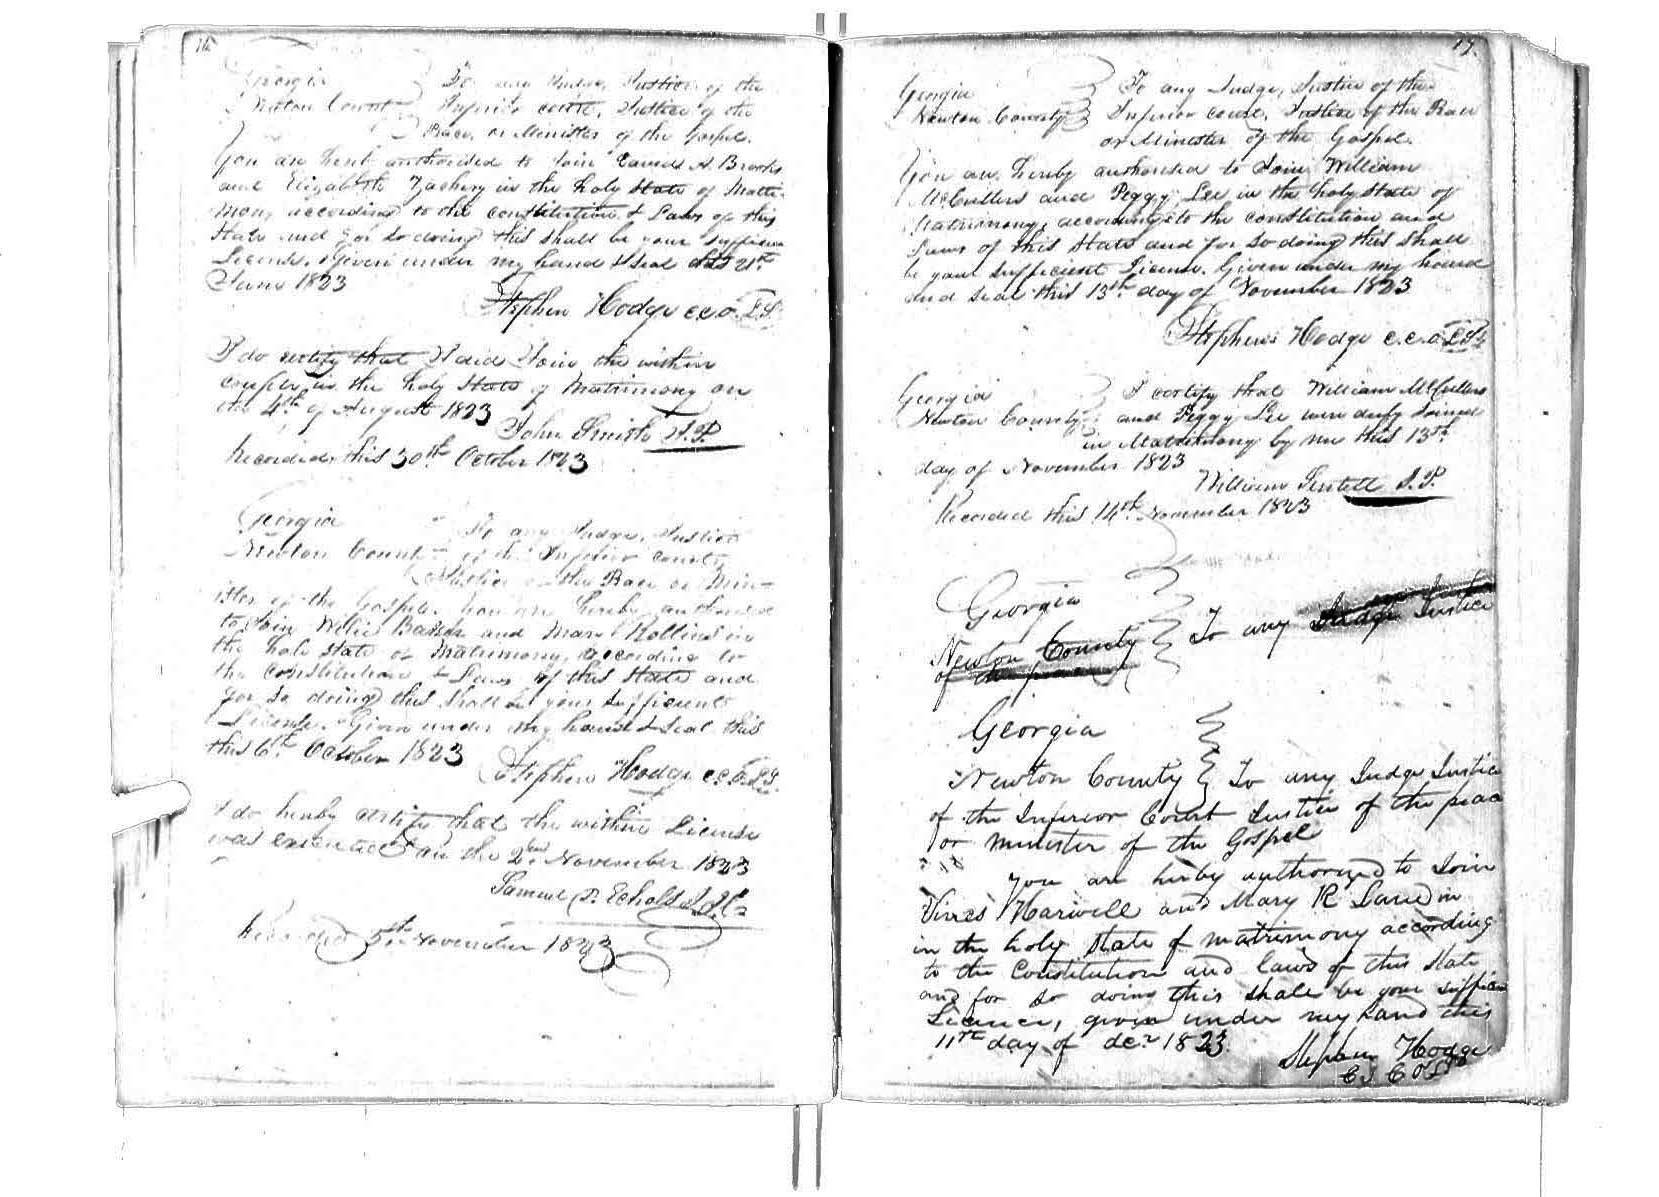 16
Georgia
Newton County
To any Judge, Justice of the
Inferior court, Justice of the
Peace, or Minister of the Gospel.
You are herby authorised to Join A. Brooks
and Elizabeth Zachery in the holy State of Matri-
mony according to the constitution & Laws of this
State and for so doing this shall be your sufficient
License. Given under my hand & Seal this 21st
June 1823
Stephen Hodge c.c.o. L.S.
I do certify that I did Join the within
couple in the holy State of Matrimony on
the 4th of August 1823
John Smith J.P.
Recorded this 30th October 1823
Georgia
Newton County
To any Judge, Justice
of the Inferior court,
Justice of the Peace or Min-
ister of the Gospel. You are hereby authorised
to Join Willie and Mary Rollins in
the holy state of Matrimony, according to
the constitution & Laws of this State and
for so doing this shall be your sufficient
License. Given under my hand & Seal this
this 6th October 1823
Stephen Hodge c.c.o. L.S.
I do hereby certify that the within License
was executed on the 2nd November 1823
Samuel P. Echols J.I.C.
Recorded 5th November 1823
17.
Georgia
Newton County
To any Judge, Justice of the
Inferior court, Justice of the Peace
or Minister of the Gospel.
You are hereby authorised to Join William
McCullers and Peggy Lee in the holy State of
Matrimony, according to the constitution and
Laws of this State and for so doing this shall
be your sufficient License. Given under my hand
and seal this 13th day of November 1823
Stephen Hodge c.c.o. L.S.
Georgia
Newton County
I certify that William McCullers
and Peggy Lee were duly Joined
in Matrimony by me this 13th
day of November 1823
William J.P.
Recorded this 14th November 1823
Georgia
Newton County
To any Judge Justice
of the peace
Georgia
Newton County
To any Judge Justice
of the Inferior Court Justice of the peace
or minister of the Gospel
You are herby authorized to Join
Harwell and Mary R Lane in
in the holy state of matrimony according
to the constitution and laws of this State
and for so doing this shall be your sufficient
Licence, given under my hand this
11th day of decr 1823
Stephen Hodge
C C O L.S.